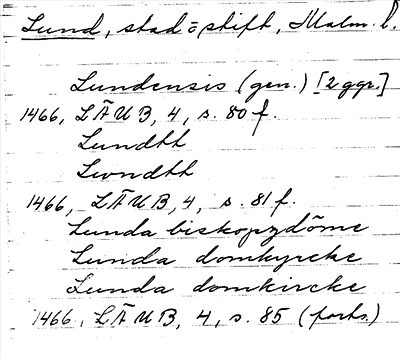 Lund, stad o stift, Malm. l.
Lundensis (gen.) [2 ggr.]
1466, LÄUB, 4, s. 80 f.
Lundtt
Lwndtt
1466, LÄUB, 4, s. 81 f.
Lunda biskopzdōme
Lunda domkyrcke
Lunda domkircke
1466, LÄUB, 4, s. 85 (forts.)